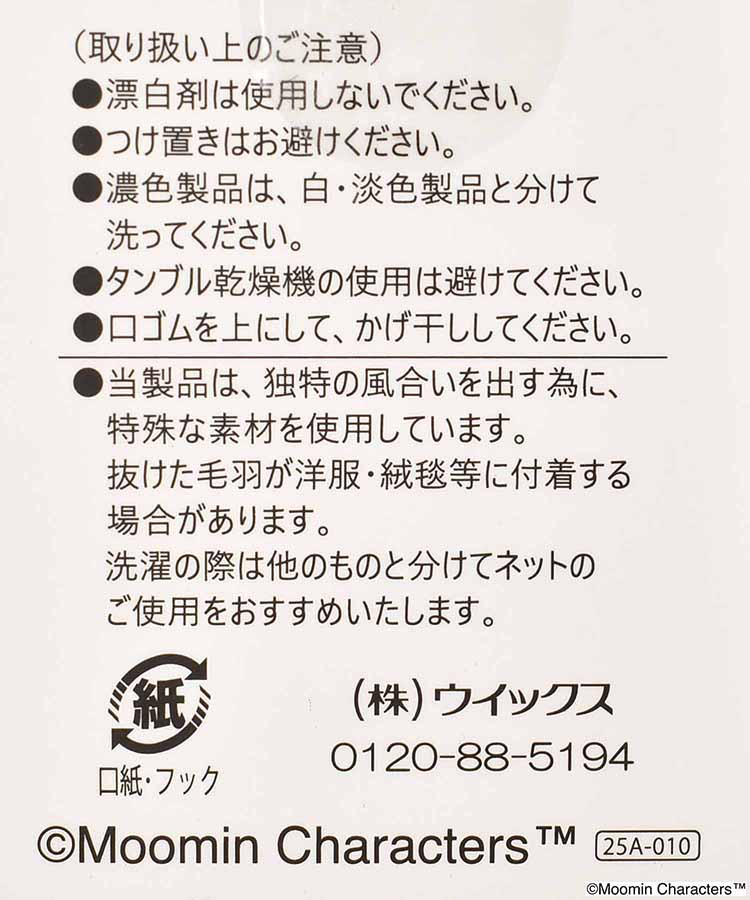 (取り扱い上のご注意)
●漂白剤は使用しないでください。
●つけ置きはお避けください。
●濃色製品は、白・淡色製品と分けて
洗ってください。
●タンブル乾燥機の使用は避けてください。
●口ゴムを上にして、かげ干ししてください。
●当製品は、独特の風合いを出す為に、
特殊な素材を使用しています。
抜けた毛羽が洋服・絨毯等に付着する
場合があります。
洗濯の際は他のものと分けてネットの
ご使用をおすすめいたします。
紙
口紙・フック
(株)ウイックス
0120-88-5194
©Moomin Characters™ 25A-010
©Moomin Characters™